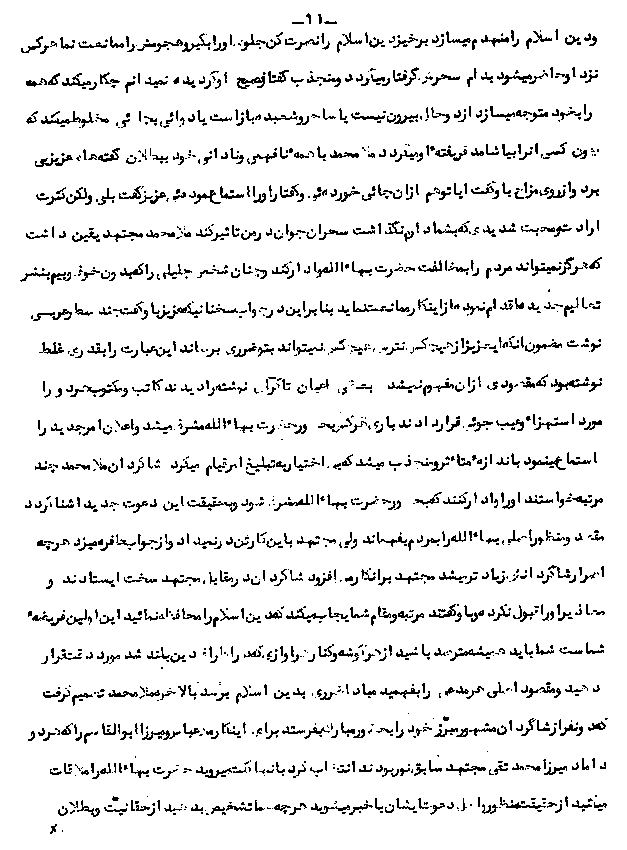 ـ ۱۱ ـ
ودین اسلام را منهدم میسازد برخیزد دین اسلام را نصرت کن جلو او را بگیر و هجومش را ممانعت نما هر کس
نزد او حاضر میشود بدام سحرش گرفتار میآرد و منجذب گفتار فصیح او گردیده نمیدانم چکار میکند که همه
را بخود متوجه میسازد از دو حال بیرون نیست یا ساحر و شعبده باز است یا دوائی بچائی مخلوط میکند که
چون کسی آنرا بیاشامد فریفته او میگردد ملا محمد با همه نافهمی و نادانی خود ببطلان گفته های عزیز پی
برد و از روی مزاح با و گفت آیا تو هم از آن چائی خورده ئی و گفتار او را استماع نموده ئی عزیز گفت بلی ولکن کثرت
ارادت و محبت شدیدی که بشما دارم نگذاشت سحر آن جوان در من تاثیر کند ملا محمد مجتهد یقین داشت
که هرگز نمیتواند مردم را بمخالفت حضرت بهاءالله وادار کند و چنان شخص جلیلی را که بدون خوف و بیم بنشر
تعالیم جدیده اقدام نموده از اینکار ممانعت نماید بنابراین در جواب سخنانیکه عزیز با و گفت چند سطر عربی
نوشت مضمون آنکه ای عزیز از هیچکس نترس هیچکس نمیتواند بتو ضرری برساند این عبارت را بقدری غلط
نوشته بود که مقصودی از آن مفهوم نمیشد بعضی اعیان تاکر آن نوشته را دیدند کاتب و مکتوب هر دو را
مورد استهزاء و عیب جوئی قرار دادند باری هر کس بحضور حضرت بهاءالله مشرف میشد و اعلان امر جدید را
استماع مینمود باندازه متاثر و منجذب میشد که بی اختیار به تبلیغ امر قیام میکرد شاگردان ملا محمد چند
مرتبه خواستند او را وادار کنند که بحضور حضرت بهاءالله مشرف شود و بحقیقت این دعوت جدید آشنا گردد
مقصد و منظور اصلی بهاءالله را بمردم بفهماند ولی مجتهد باین کار تن در نمیداد و از جواب طفره میزد هر چه
اصرار شاگردانش زیادتر میشد مجتهد بر انکار می افزود شاگردان در مقابل مجتهد سخت ایستادند و
معاذیر او را قبول نکرده و با و گفتند مرتبه و مقام شما ایجاب میکند که دین اسلام را محافظه نمائید این اولین فریضه
شما است شما باید همیشه مترصد باشید از هر گوشه و کنار هر آوازی که در اطراف دین بلند شد مورد دقت قرار
دهید و مقصود اصلی هر مدعی را بفهمید مبادا ضرری بدین اسلام برسد بالاخره ملا محمد تصمیم گرفت
که دو نفر از شاگردان مشهور مبرز خود را بحضور مبارک بفرستد برای اینکار ملا عباس و میرزا ابوالقاسم را که هر دو
داماد میرزا محمد تقی مجتهد سابق نور بودند انتخاب کرد بانها گفت میروید حضرت بهاءالله را ملاقات
میکنید از حقیقت منظور و اصل دعوت ایشان با خبر میشوید هر چه شما تشخیص بدهید از حقانیت و بطلان